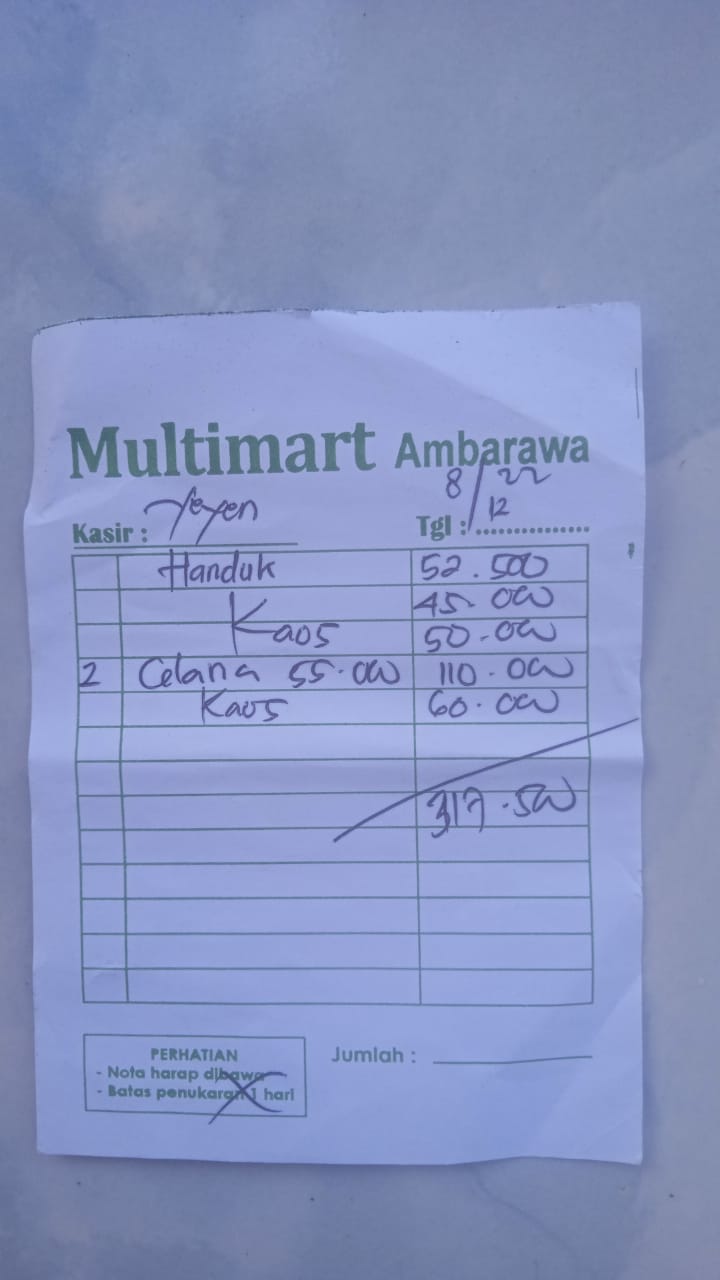 Multimart Ambarawa
Kasir : Yeyen
Tgl : 8/12 22
Handuk 52.500
45.000
Kaos 50.000
2 Celana 55.000 110.000
Kaos 60.000
317.500
PERHATIAN
- Nota harap dibawa
- Batas penukaran 1 hari
Jumlah :